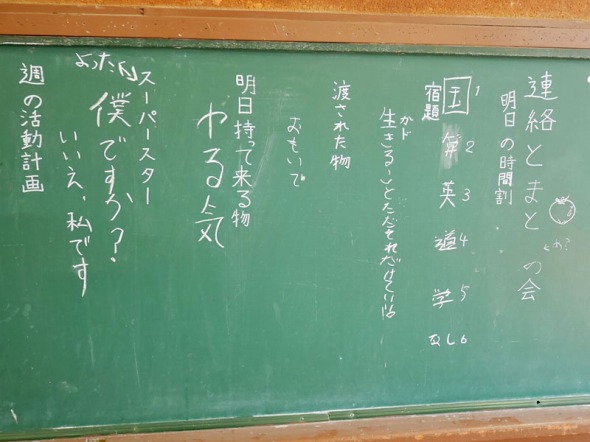 連絡とまとの会
とね?
明日の時間割
国1
算2
英3
道4
学5
なし6
宿題
生きる〜ことただそれだけでいい!!
渡された物
おもいで
明日持って来る物
やる気
スーパースター
僕ですか?
いいえ、私です
週の活動計画